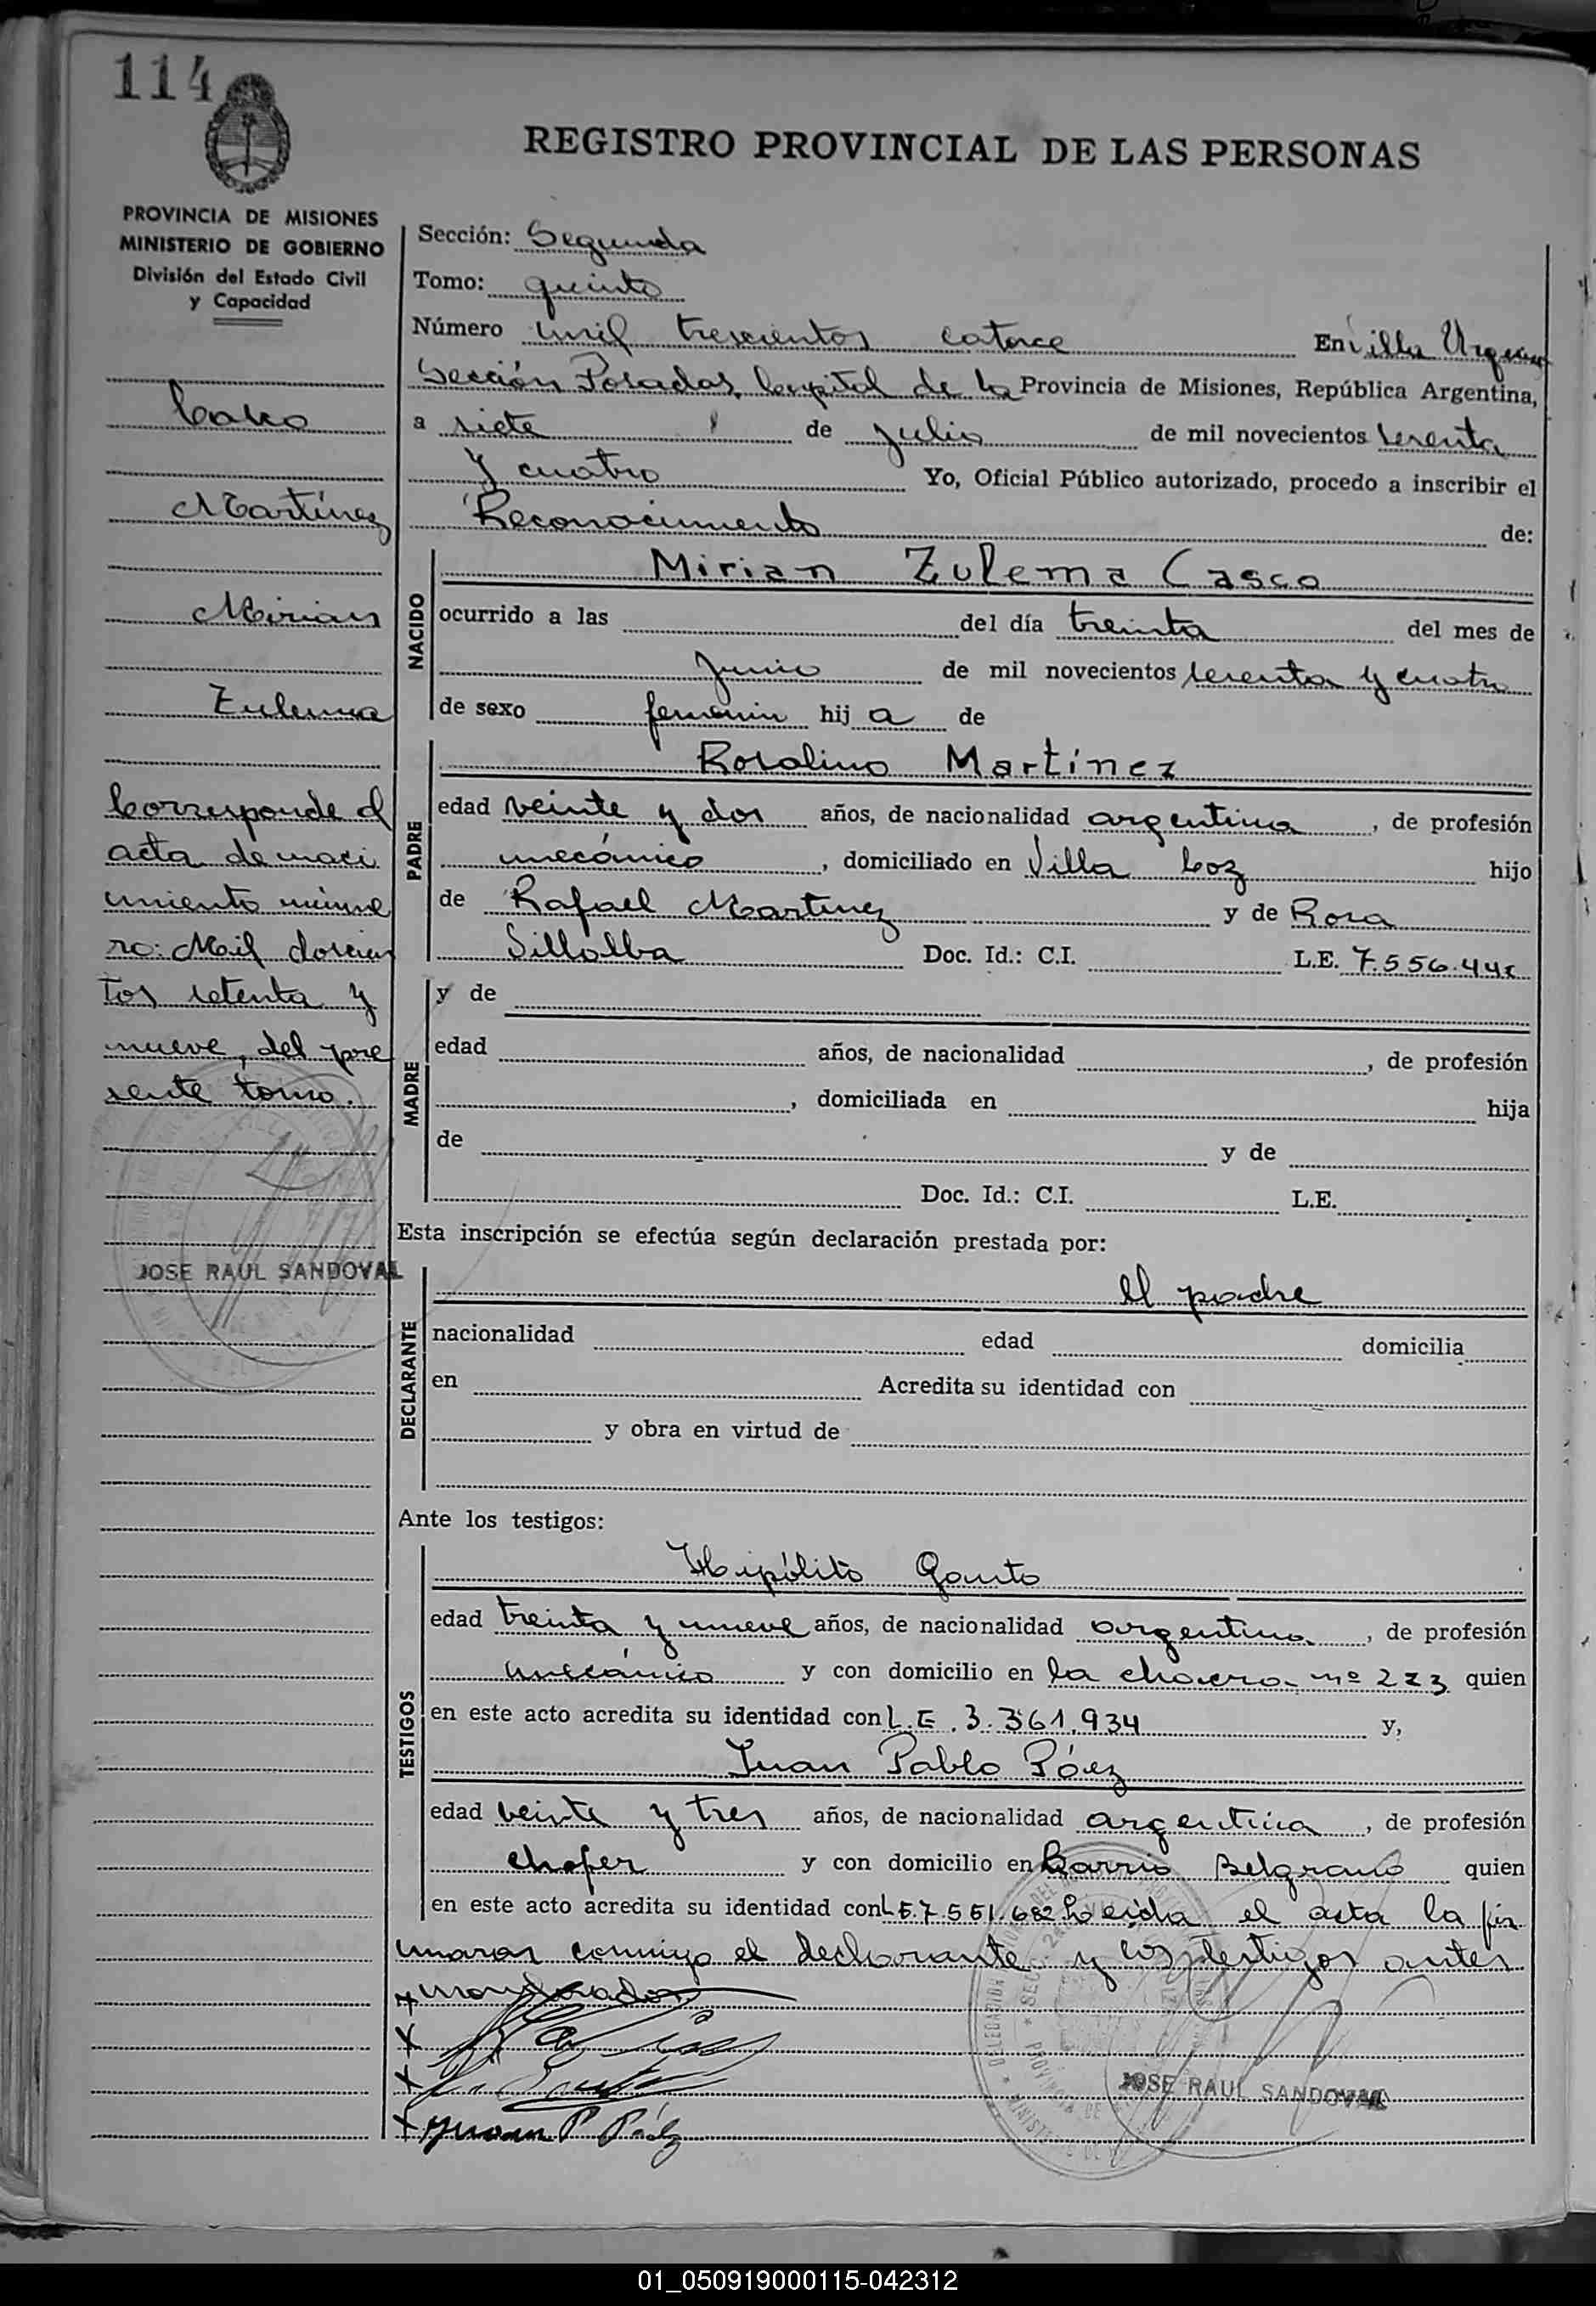 114
REGISTRO PROVINCIAL DE LAS PERSONAS
PROVINCIA DE MISIONES
MINISTERIO DE GOBIERNO
División del Estado Civil
y Capacidad
Casco
Martínez
Mirian
Zulema
Corresponde al
acta de naci
miento núme
ro: Mil doscien
tos setenta y
nueve, del pre
sente tomo.
JOSE RAUL SANDOVAL
Sección: Segunda
Tomo: quinto
Número mil trescientos catorce En Villa Urquiza
Sección Posadas, Capital de la Provincia de Misiones, República Argentina,
a siete de julio de mil novecientos sesenta
y cuatro Yo, Oficial Público autorizado, procedo a inscribir el
Reconocimiento de:
NACIDO
Mirian Zulema Casco
ocurrido a las del día treinta del mes de
junio de mil novecientos sesenta y cuatro
de sexo femenin hij a de
PADRE
Rosalino Martínez
edad veinte y dos años, de nacionalidad argentina, de profesión
mecánico, domiciliado en Villa Coz hijo
de Rafael Martinez y de Rosa
Sillalba Doc. Id.: C.I. L.E. 7.556.44
MADRE
y de
edad años, de nacionalidad , de profesión
, domiciliada en hija
de y de
Doc. Id.: C.I. L.E.
Esta inscripción se efectúa según declaración prestada por:
DECLARANTE
el padre
nacionalidad edad domicilia
en Acredita su identidad con
y obra en virtud de
Ante los testigos:
TESTIGOS
Hipólito Gauto
edad treinta y nueve años, de nacionalidad argentina, de profesión
mecánico y con domicilio en la chacra nº 223 quien
en este acto acredita su identidad con L.E. 3.361.934 y,
Juan Pablo Páez
edad veinte y tres años, de nacionalidad argentina, de profesión
chofer y con domicilio en Barrio Belgrano quien
en este acto acredita su identidad con L.E. 7.551.682 Leída el acta la fir
maron conmigo el declarante y los testigos antes
mencionados
X
X
X Juan P Páez
JOSE RAUL SANDOVAL
01_050919000115-042312